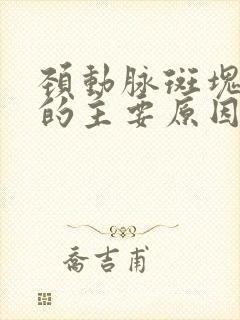 頚動脉斑塊
的主要原因
喬吉甫